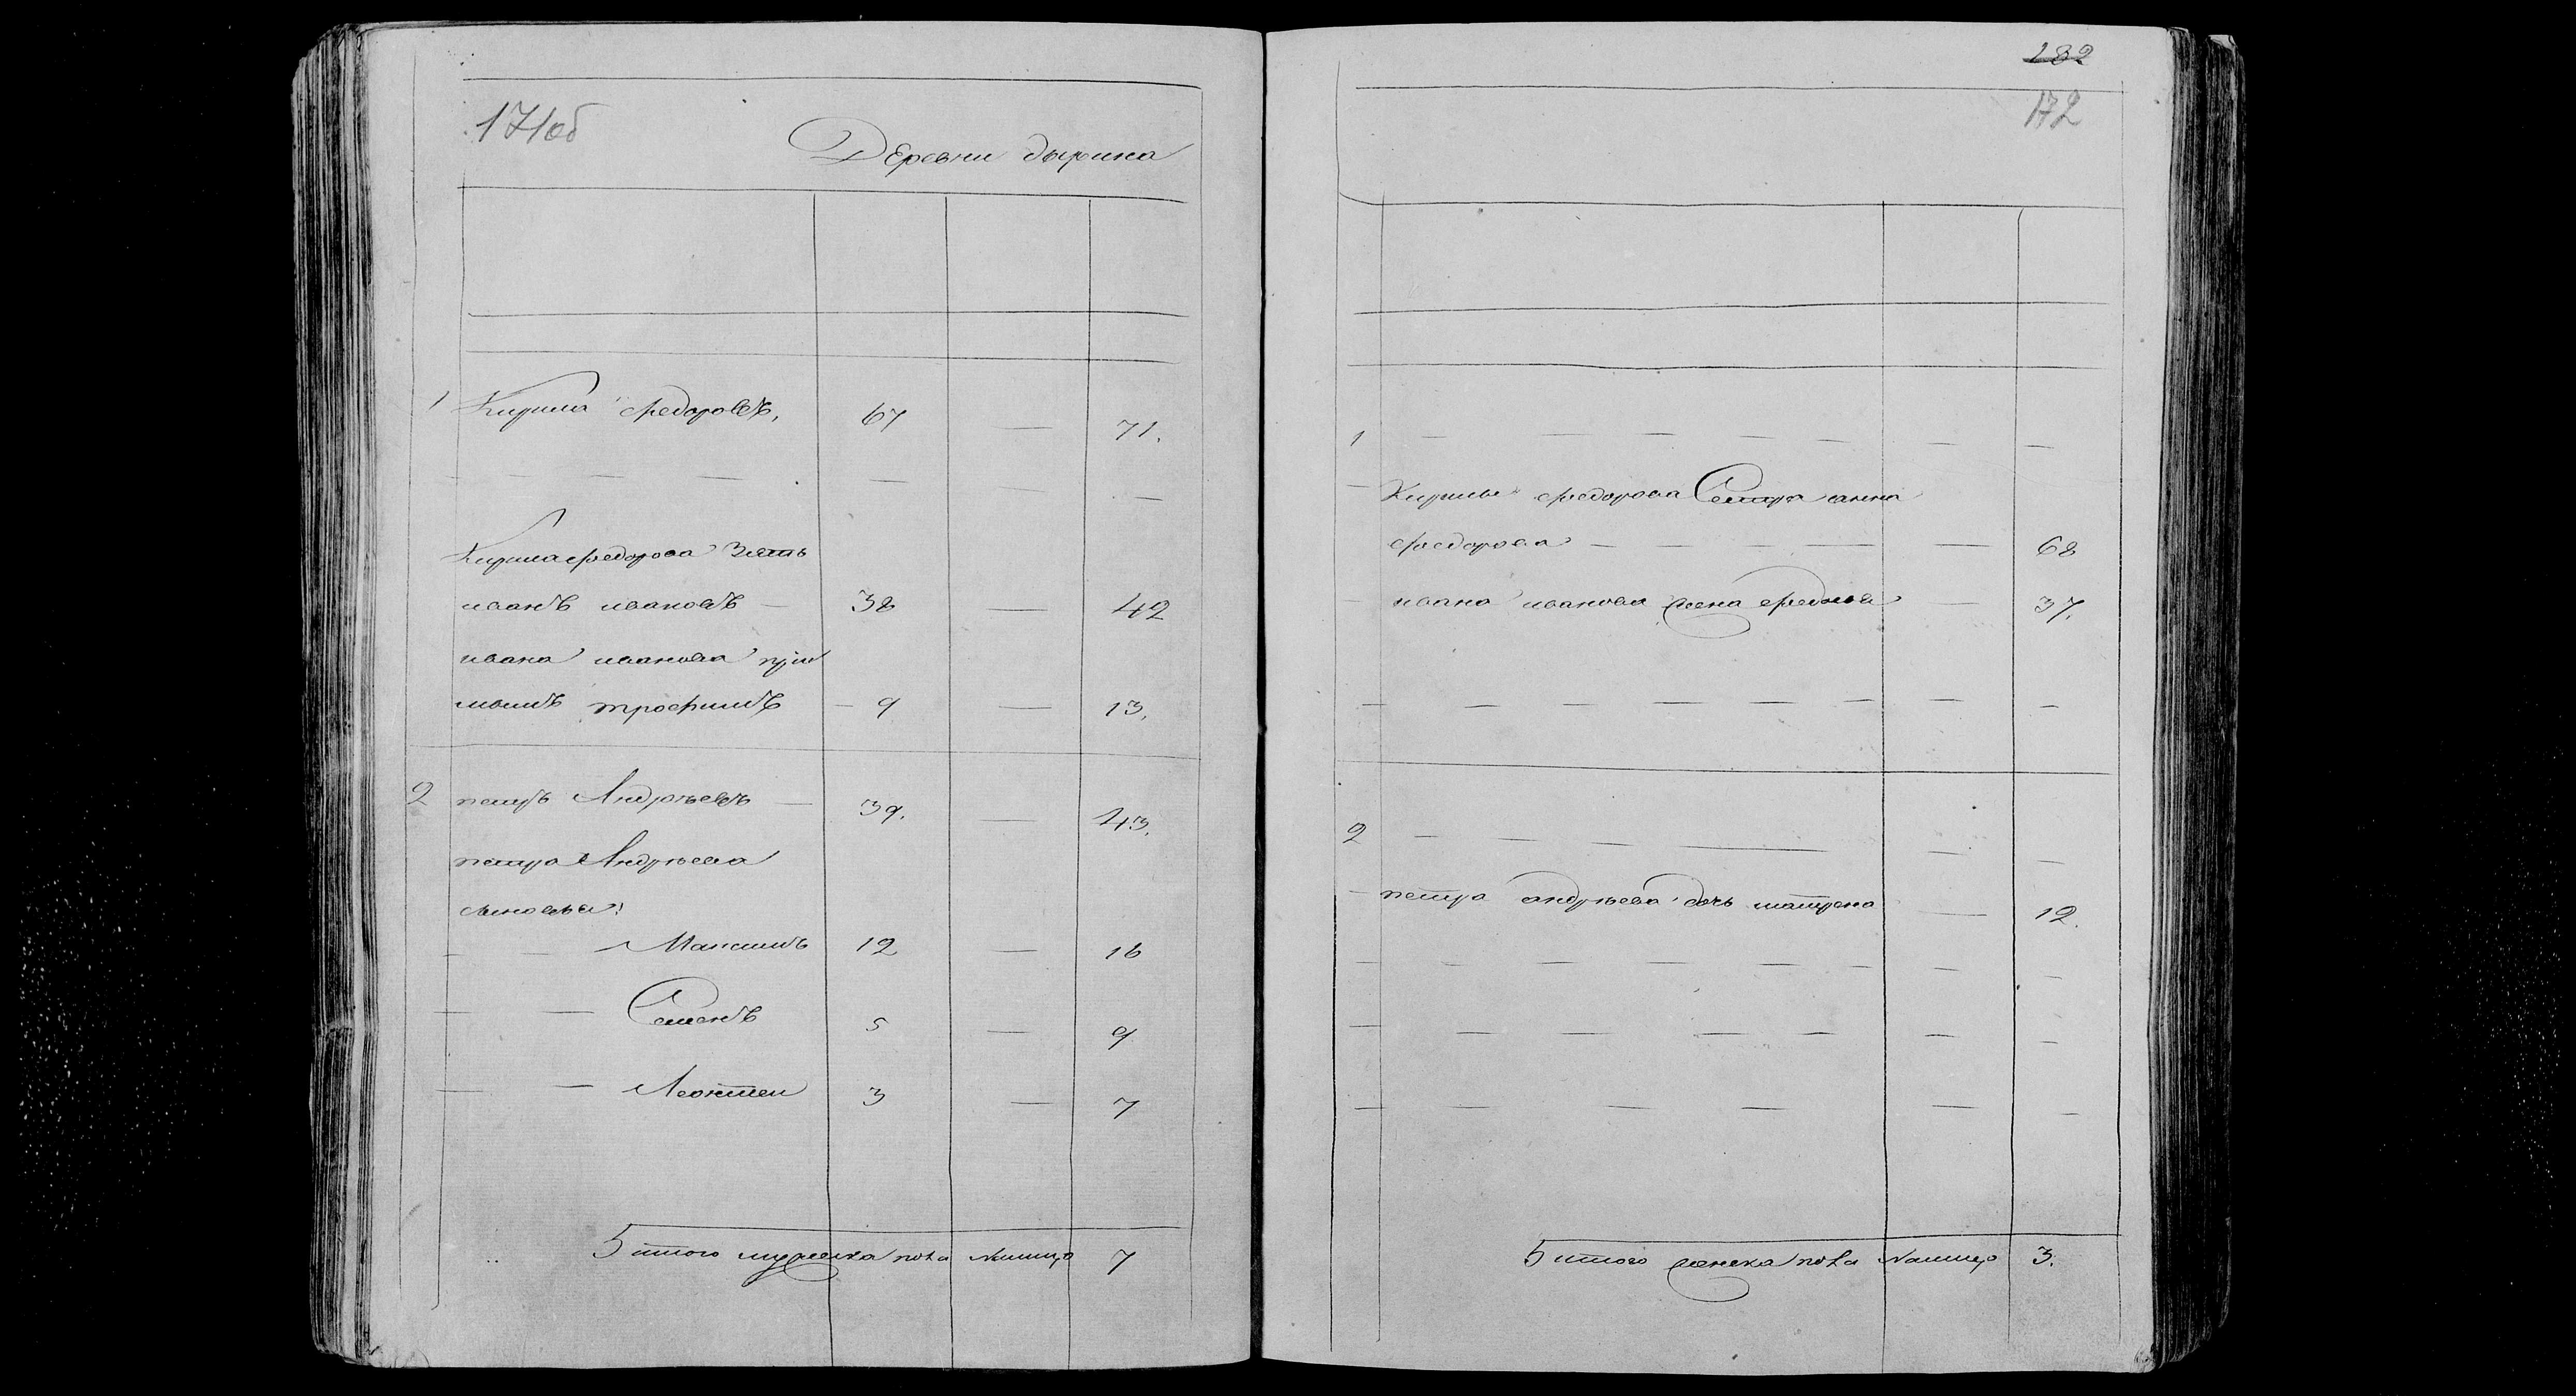 171об
Деревни дырина
1 Кирила Федоровъ, 67 — 71.
— — — — — —
Кирила федорова Зять
иванъ ивановъ — 38 — 42
ивана иванова прие
мышъ трофимъ — 9 — 13.
2 петръ Андреевъ — 39. — 43.
петра Андреева
сыновья:
— — Максимъ 12 — 16
— — Семенъ 5 — 9
— — Леонтеи 3 — 7
итого мужеска пола Налицо 7
182
172
1 — — — — — — —
— Кирилы федорова Сестра анна
федорова — — — — — 68
— ивана иванова жена — 37.
— — — — — — — —
2 — — — — — —
— петра андреева дочь матрена — 12.
— — — — — — — —
— — — — — — —
— — — — — —
итого женска пола Налицо 3.